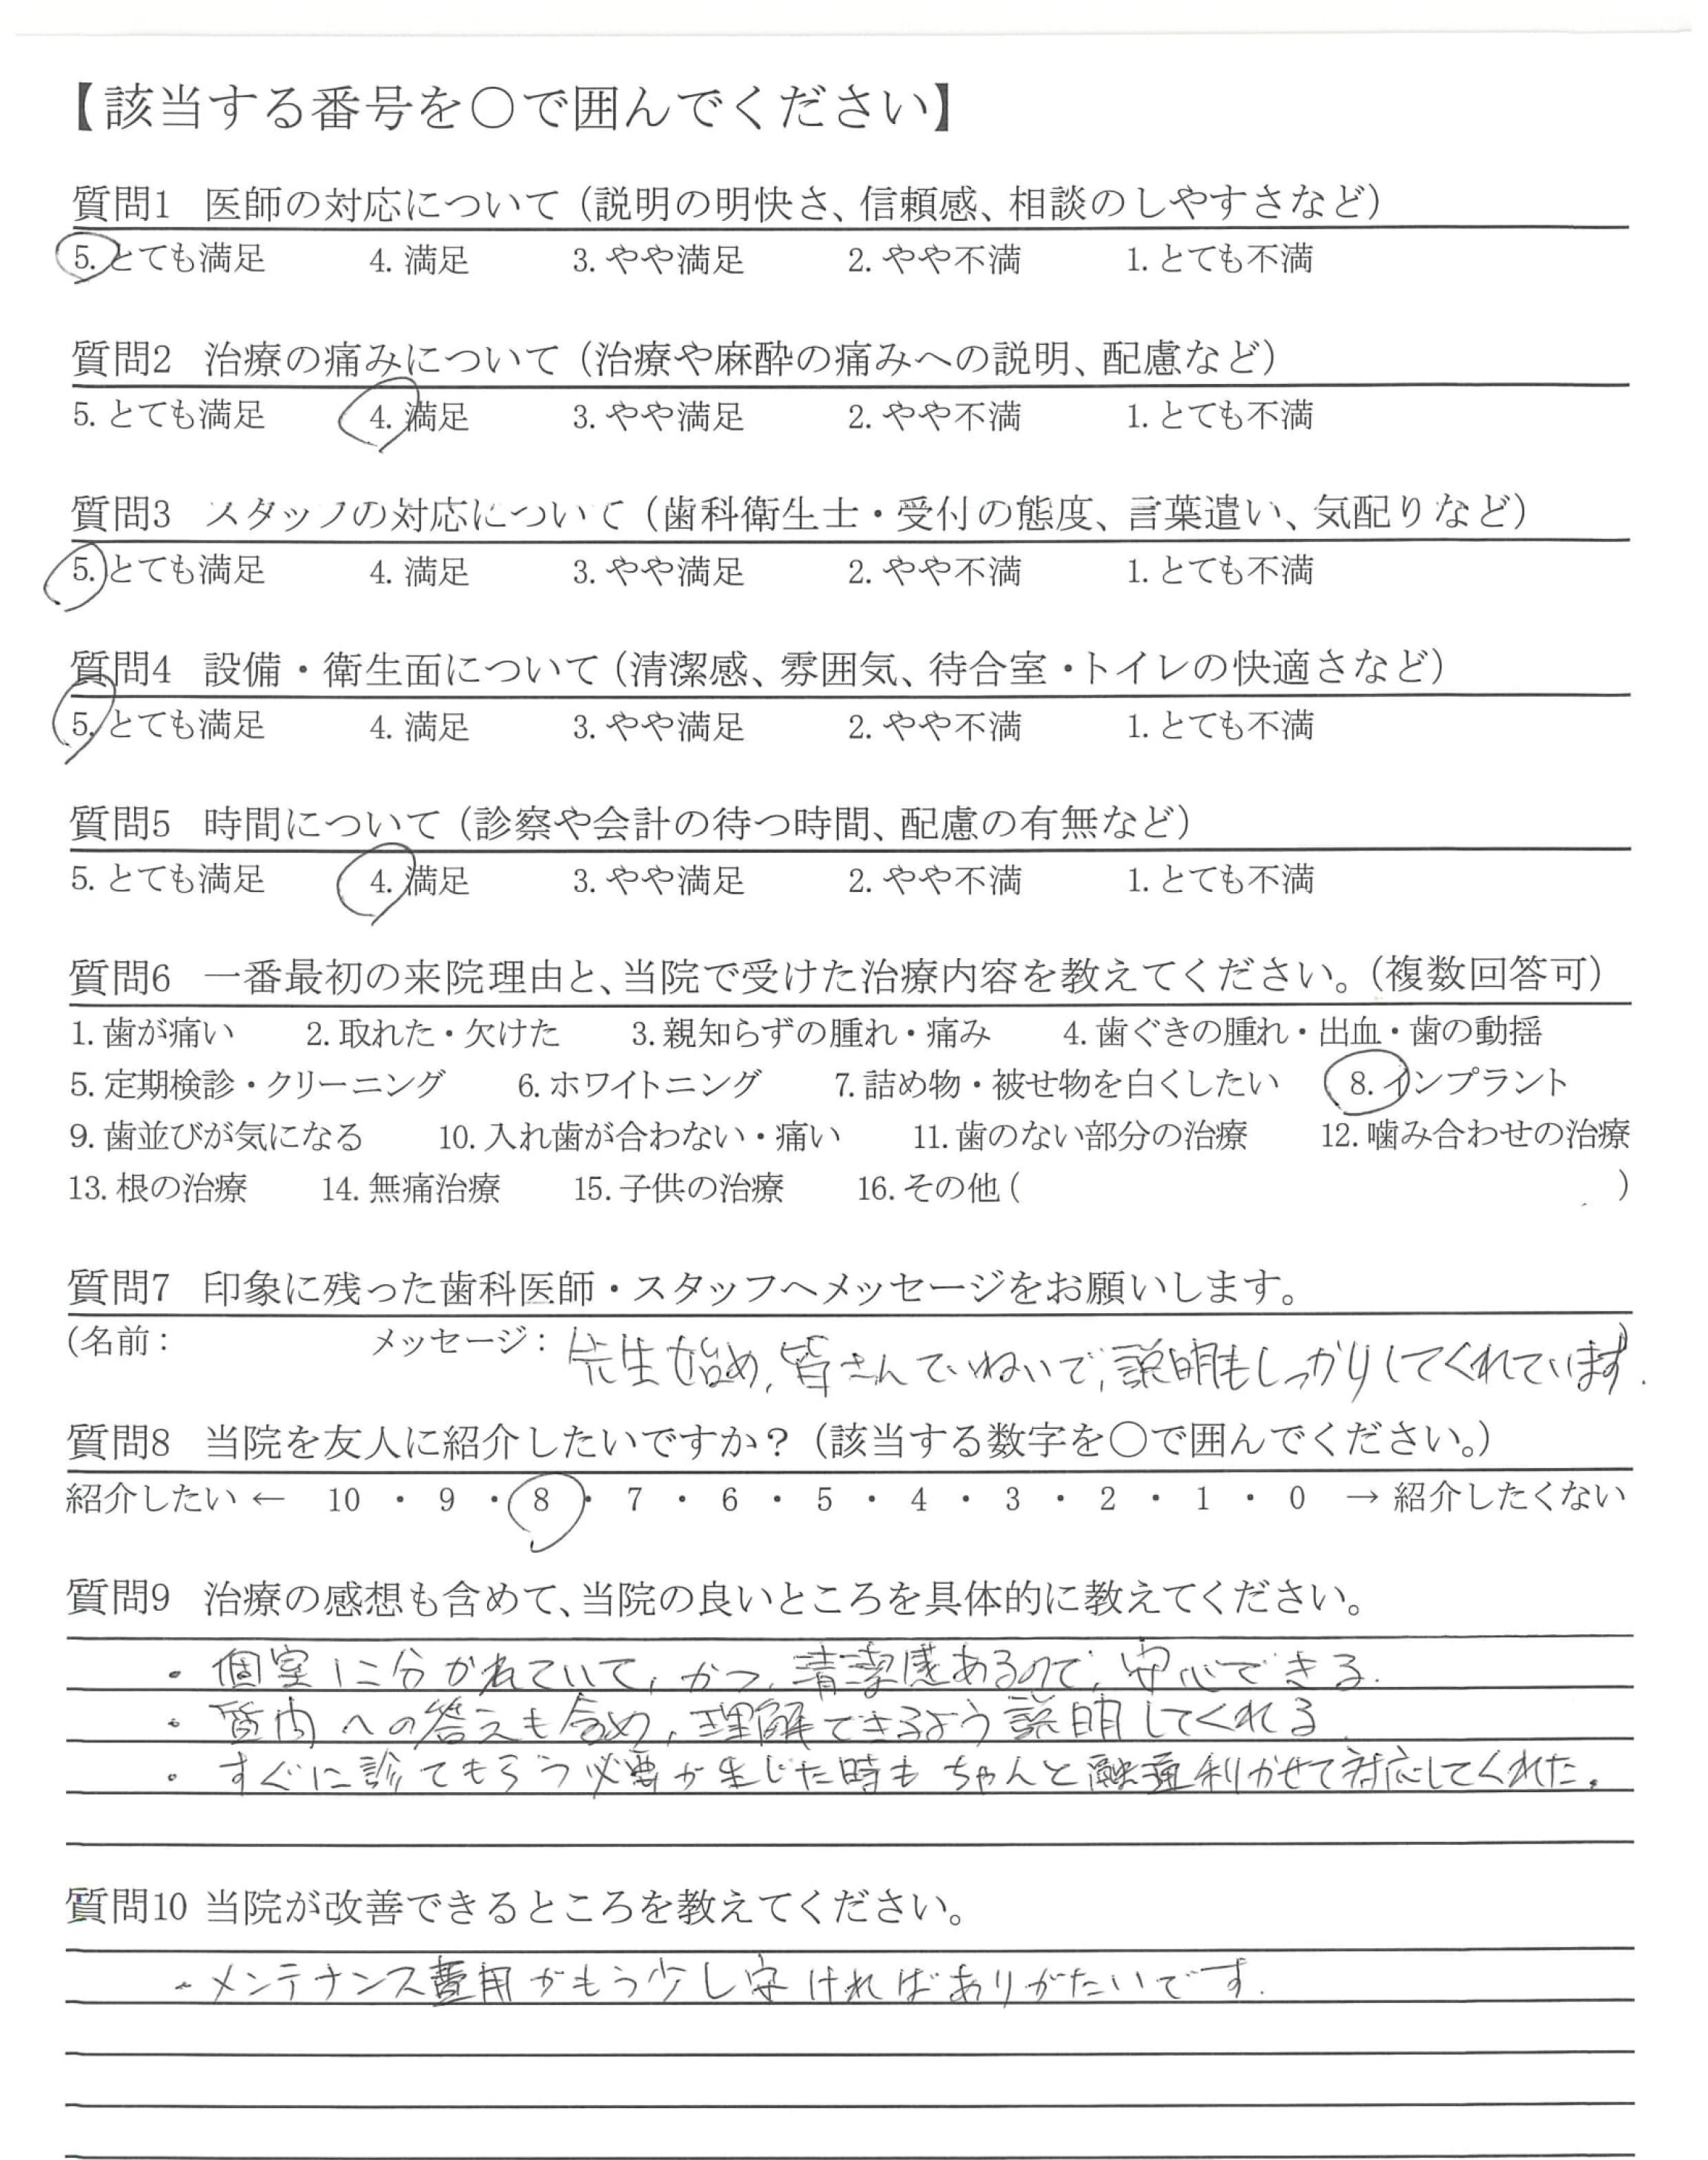 【該当する番号を○で囲んでください】
質問1 医師の対応について（説明の明快さ、信頼感、相談のしやすさなど）
5. とても満足 4. 満足 3. やや満足 2. やや不満 1. とても不満
質問2 治療の痛みについて（治療や麻酔の痛みへの説明、配慮など）
5. とても満足 4. 満足 3. やや満足 2. やや不満 1. とても不満
質問3 スタッフの対応について（歯科衛生士・受付の態度、言葉遣い、気配りなど）
5. とても満足 4. 満足 3. やや満足 2. やや不満 1. とても不満
質問4 設備・衛生面について（清潔感、雰囲気、待合室・トイレの快適さなど）
5. とても満足 4. 満足 3. やや満足 2. やや不満 1. とても不満
質問5 時間について（診察や会計の待つ時間、配慮の有無など）
5. とても満足 4. 満足 3. やや満足 2. やや不満 1. とても不満
質問6 一番最初の来院理由と、当院で受けた治療内容を教えてください。（複数回答可）
1. 歯が痛い 2. 取れた・欠けた 3. 親知らずの腫れ・痛み 4. 歯ぐきの腫れ・出血・歯の動揺
5. 定期検診・クリーニング 6. ホワイトニング 7. 詰め物・被せ物を白くしたい 8. インプラント
9. 歯並びが気になる 10. 入れ歯が合わない・痛い 11. 歯のない部分の治療 12. 噛み合わせの治療
13. 根の治療 14. 無痛治療 15. 子供の治療 16. その他（ ）
質問7 印象に残った歯科医師・スタッフへメッセージをお願いします。
（名前： メッセージ：先生始め、皆さんていねいで、説明もしっかりしてくれています.）
質問8 当院を友人に紹介したいですか？（該当する数字を○で囲んでください。）
紹介したい ← 10 ・ 9 ・ 8 ・ 7 ・ 6 ・ 5 ・ 4 ・ 3 ・ 2 ・ 1 ・ 0 → 紹介したくない
質問9 治療の感想も含めて、当院の良いところを具体的に教えてください。
・個室に分かれていて、かつ、清潔感あるので、安心できる.
・質問への答えも含め、理解できるよう説明してくれる.
・すぐに診てもらう必要が生じた時もちゃんと融通利かせて対応してくれた。
質問10 当院が改善できるところを教えてください。
・メンテナンス費用がもう少し安ければありがたいです.